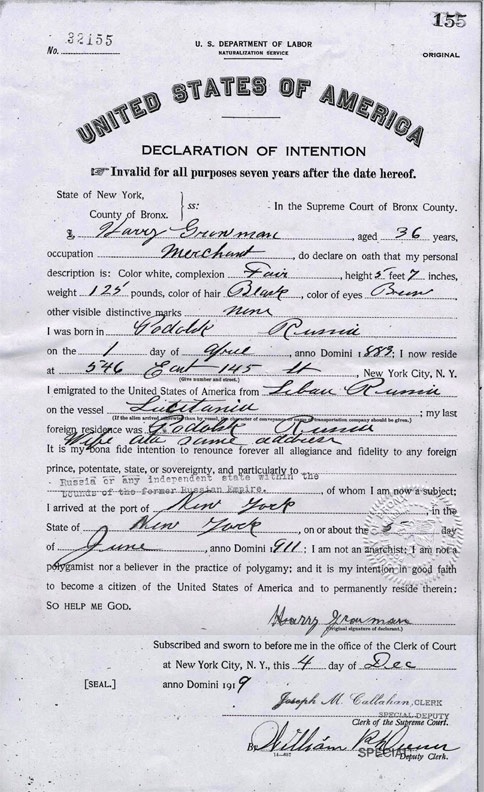 155
No. 32155
U. S. DEPARTMENT OF LABOR
NATURALIZATION SERVICE
ORIGINAL
UNITED STATES OF AMERICA
DECLARATION OF INTENTION
☞ Invalid for all purposes seven years after the date hereof.
State of New York,
County of Bronx. } ss: In the Supreme Court of Bronx County.
I, Harry Growman, aged 36 years,
occupation Merchant, do declare on oath that my personal
description is: Color white, complexion Fair, height 5 feet 7 inches,
weight 125 pounds, color of hair Black, color of eyes Brown
other visible distinctive marks none
I was born in Godolsk Russia
on the 1 day of April, anno Domini 1883; I now reside
at 546 East 145 St, New York City, N. Y.
(Give number and street.)
I emigrated to the United States of America from Libau Russia
on the vessel Lucitania; my last
(If the alien arrived otherwise than by vessel, the character of conveyance or name of transportation company should be given.)
foreign residence was Godolsk Russia
Wife at same address
It is my bona fide intention to renounce forever all allegiance and fidelity to any foreign
prince, potentate, state, or sovereignty, and particularly to
Russia or any independent state within the
bounds of the former Russian Empire., of whom I am now a subject;
I arrived at the port of New York, in the
State of New York, on or about the 5 day
of June, anno Domini 1911; I am not an anarchist; I am not a
polygamist nor a believer in the practice of polygamy; and it is my intention in good faith
to become a citizen of the United States of America and to permanently reside therein:
SO HELP ME GOD.
Harry Growman
(Original signature of declarant.)
Subscribed and sworn to before me in the office of the Clerk of Court
at New York City, N. Y., this 4 day of Dec
[SEAL.] anno Domini 1919
Joseph M. Callahan, CLERK
SPECIAL DEPUTY
Clerk of the Supreme Court.
By William
SPECIAL Deputy Clerk.
14—697